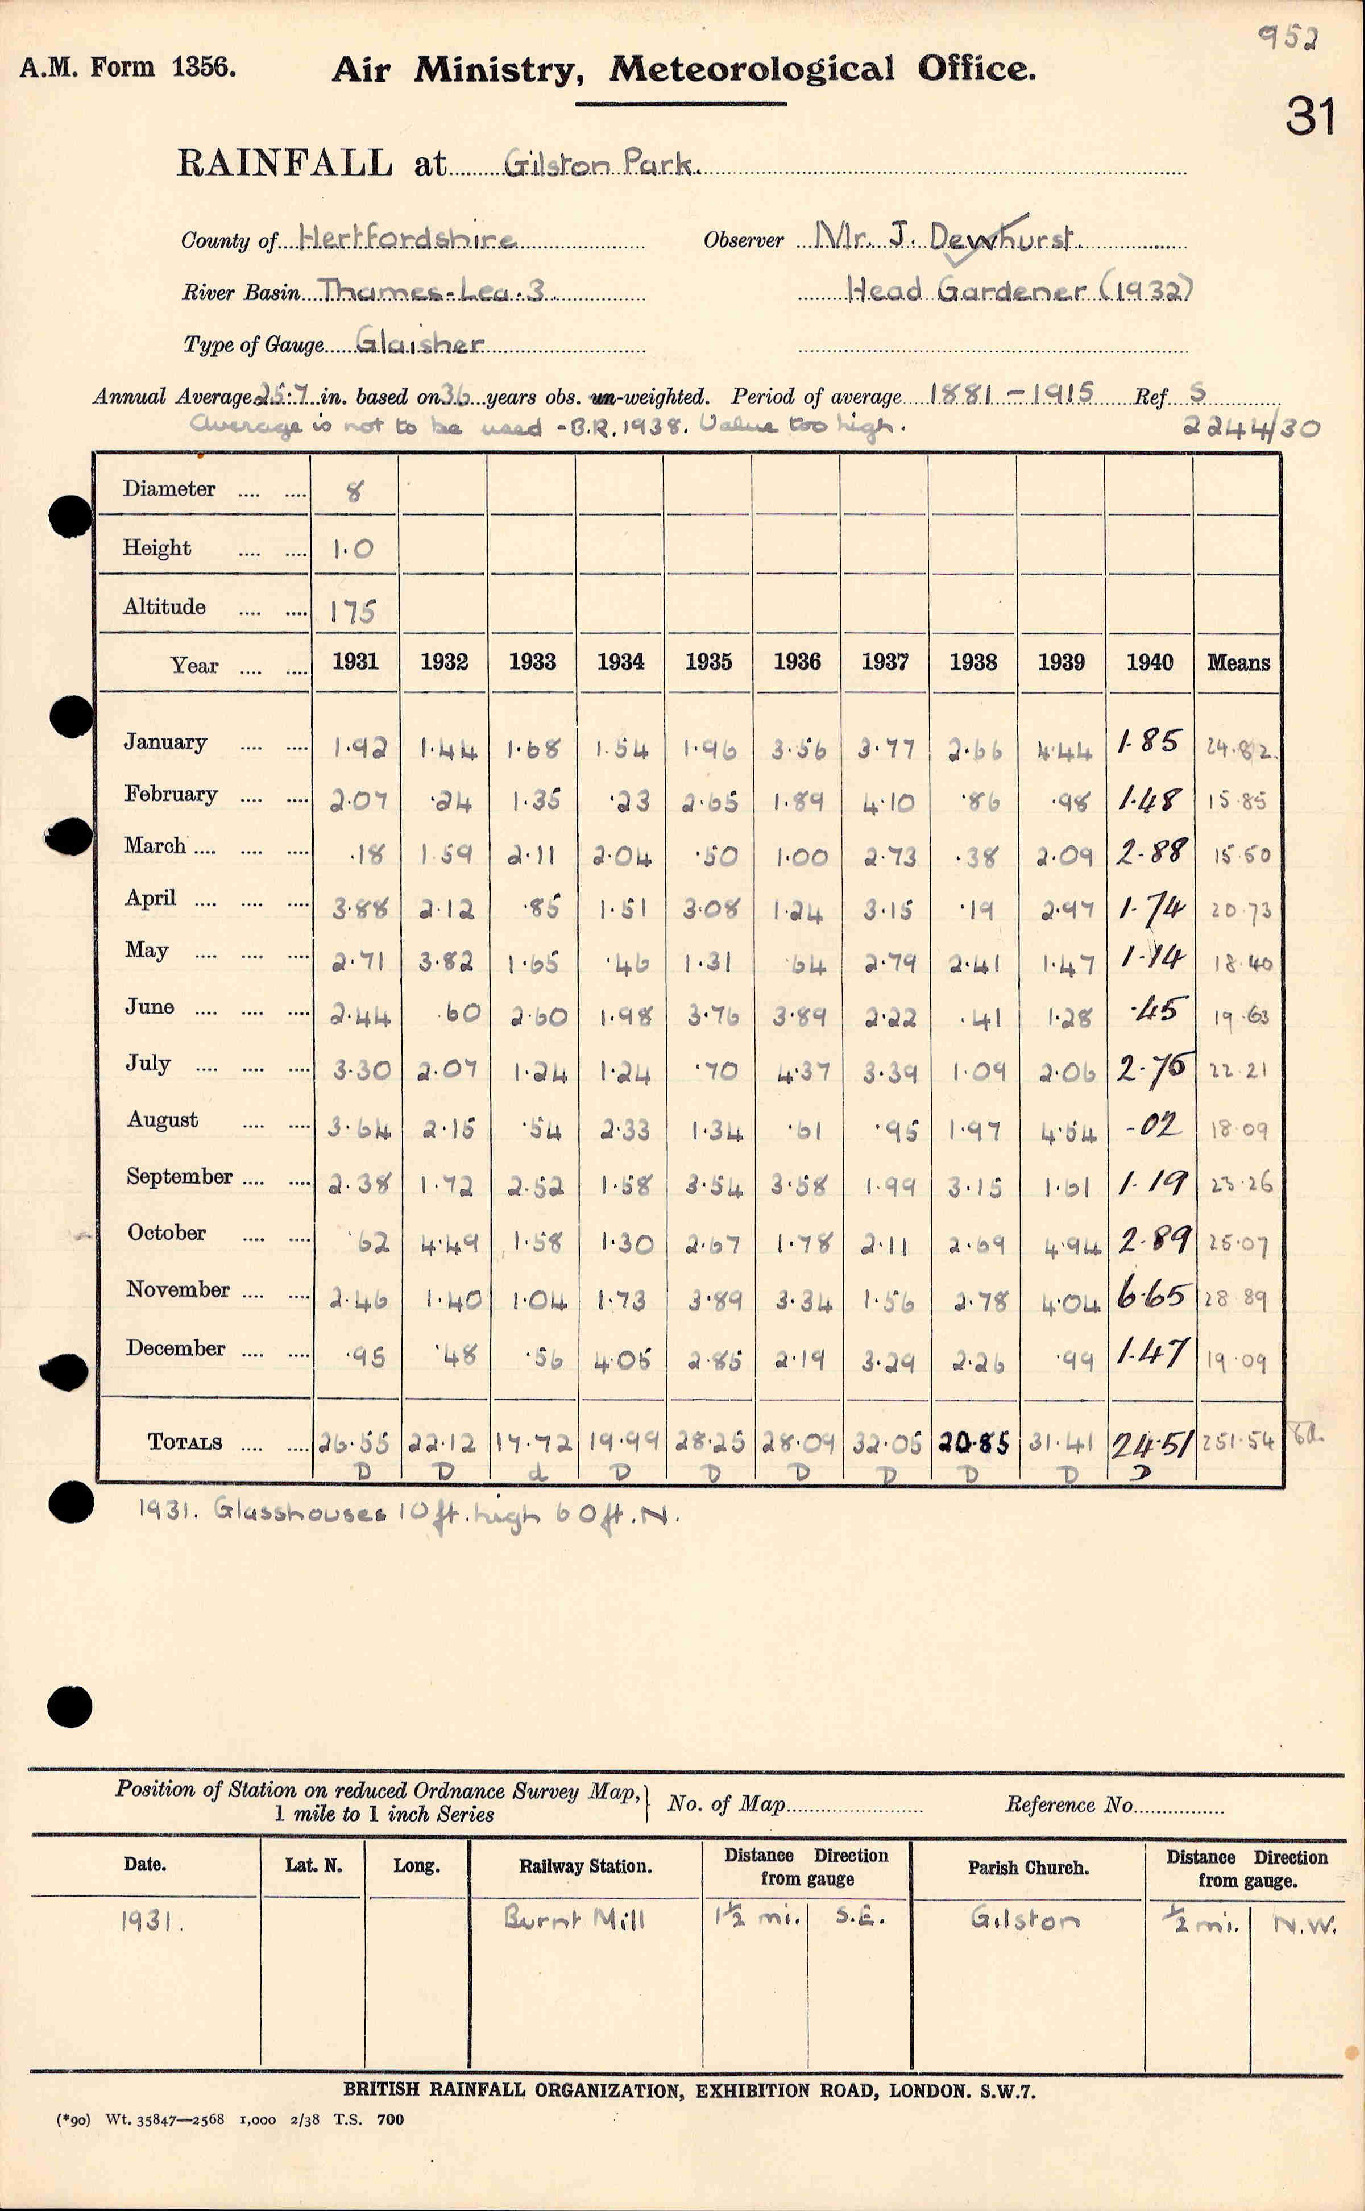 952
A.M. Form 1356. Air Ministry, Meteorological Office.
31
RAINFALL at Gilston Park.
County of Hertfordshire Observer Mr. J. Dewhurst.
River Basin Thames-Lea.3 Head Gardener (1932)
Type of Gauge Glaisher
Annual Average 25.7 in. based on 36 years obs. un-weighted. Period of average 1881-1915 Ref S
Average is not to be used - B.R. 1938. Value too high. 2244/30
Diameter .... .... 8
Height .... .... 1.0
Altitude .... .... 175
Year .... .... 1931 1932 1933 1934 1935 1936 1937 1938 1939 1940 Means
January .... .... 1.92 1.44 1.68 1.54 1.96 3.56 3.77 2.66 4.44 1.85 24.82
February .... .... 2.07 .24 1.35 .23 2.65 1.89 4.10 .86 .98 1.48 15.85
March .... .... .... .18 1.59 2.11 2.04 .50 1.00 2.73 .38 2.09 2.88 15.50
April .... .... .... 3.88 2.12 .85 1.51 3.08 1.24 3.15 .19 2.97 1.74 20.73
May .... .... .... 2.71 3.82 1.65 .46 1.31 .64 2.79 2.41 1.47 1.14 18.40
June .... .... .... 2.44 .60 2.60 1.98 3.76 3.89 2.22 .41 1.28 .45 19.63
July .... .... .... 3.30 2.07 1.24 1.24 .70 4.37 3.39 1.09 2.06 2.75 22.21
August .... .... 3.64 2.15 .54 2.33 1.34 .61 .95 1.97 4.54 .02 18.09
September .... .... 2.38 1.72 2.52 1.58 3.54 3.58 1.99 3.15 1.61 1.19 23.26
October .... .... .62 4.49 1.58 1.30 2.67 1.78 2.11 2.69 4.94 2.89 25.07
November .... .... 2.46 1.40 1.04 1.73 3.89 3.34 1.56 2.78 4.04 6.65 28.89
December .... .... .95 .48 .56 4.05 2.85 2.19 3.29 2.26 .99 1.47 19.09
TOTALS .... .... 26.55 22.12 17.72 19.99 28.25 28.09 32.05 20.85 31.41 24.51 251.54
D D d D D D D D D D
1931. Glasshouses 10ft. high 60ft. N.
Position of Station on reduced Ordnance Survey Map, 1 mile to 1 inch Series } No. of Map Reference No.
Date. Lat. N. Long. Railway Station. Distance Direction from gauge Parish Church. Distance Direction from gauge.
1931. Burnt Mill 1½ mi. S.E. Gilston ½ mi. N.W.
BRITISH RAINFALL ORGANIZATION, EXHIBITION ROAD, LONDON. S.W.7.
(*90) Wt. 35847—2568 1,000 2/38 T.S. 700